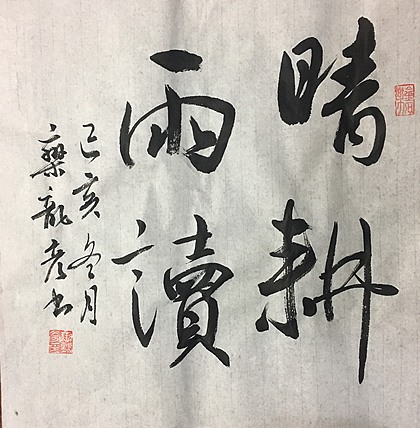 晴耕
雨讀
己亥冬月
龍彥书